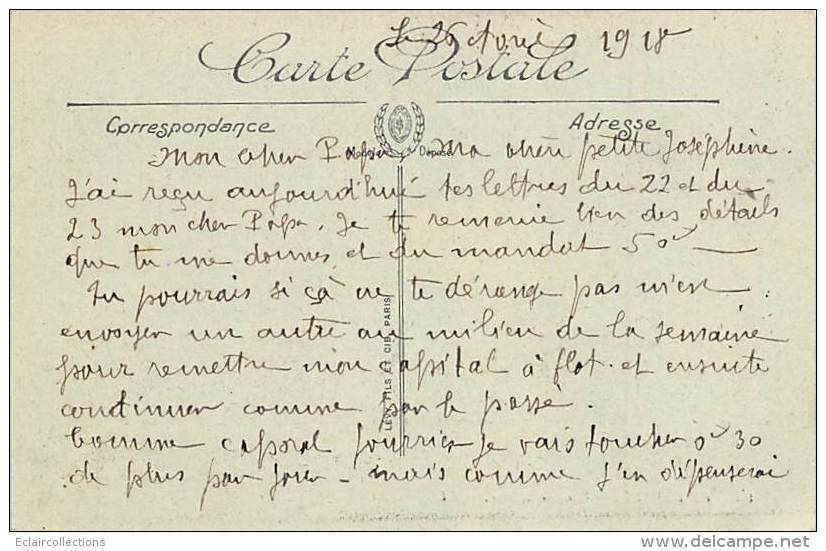 Le 26 Avril 1918
Carte Postale
Correspondance
Adresse
Modèle Déposé
Mon cher Papa, Ma chère petite Joséphine.
J'ai reçu aujourd'hui tes lettres du 22 et du
23 mon cher Papa. Je te remercie bien des détails
que tu me donnes et du mandat 50f
Tu pourrais si çà ne te dérange pas m'en
envoyer un autre au milieu de la semaine
pour remettre mon capital à flot. et ensuite
continuer comme par le passé.
Comme caporal fourrier je vais toucher 0f30
de plus par jour - mais comme j'en dépenserai
LEVY FILS ET CIE, PARIS
Eclaircollections
http://www.delcampe.net